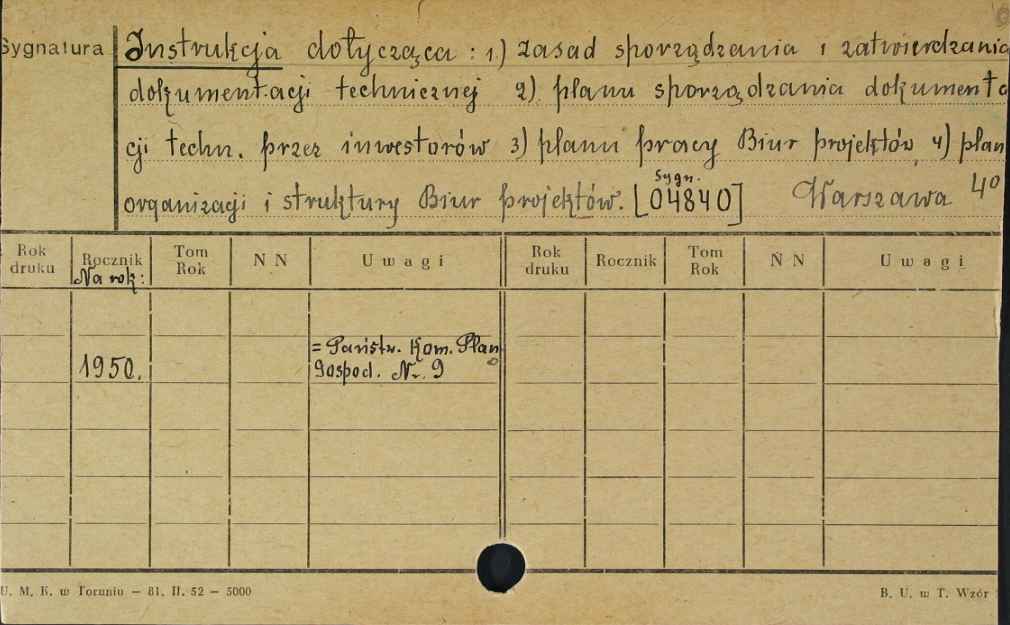 Sygnatura
Instrukcja dotycząca: 1) zasad sporządzania i zatwierdzania
dokumentacji technicznej 2) planu sporządzania dokumenta
cji techn. przez inwestorów 3) planu pracy Biur projektów 4) plan
organizacji i struktury Biur projektów. [04840] Warszawa 4°
Sygn.
Rok druku Rocznik Tom Rok N N Uwagi Rok druku Rocznik Tom Rok N N Uwagi
Na rok:
1950. = Państw. Kom. Plan
Gospod. Nr. 9
U. M. K. w Toruniu — 81. II. 52 — 5000 B. U. w T. Wzór